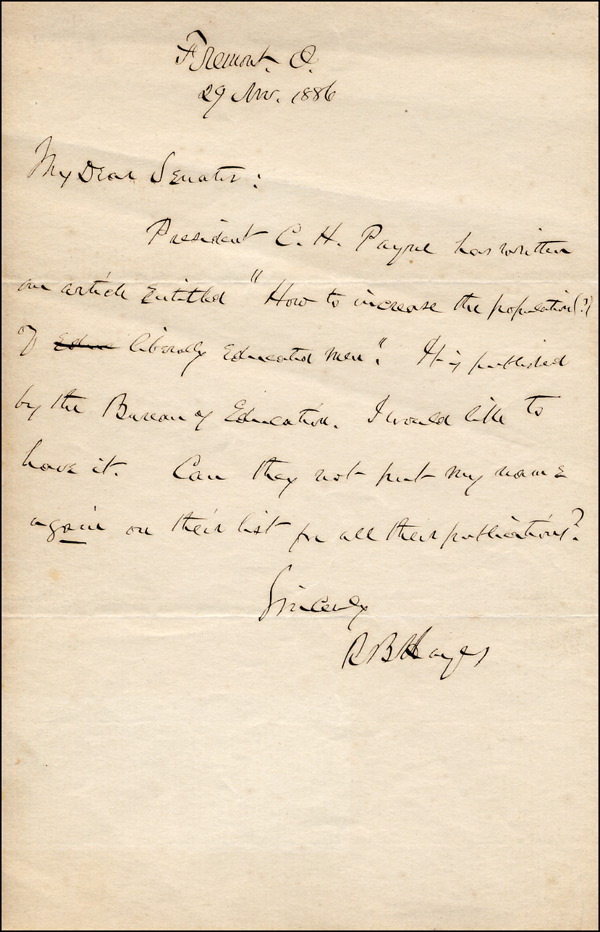 Fremont. O.
29 Nov. 1886
My Dear Senator:
President C. H. Payne has written
an article Entitled "How to increase the population(?)
of Educa liberally Educated men". It is published
by the Bureau of Education. I would like to
have it. Can they not put my name
again on their list for all their publications?
Sincerely
R B Hayes